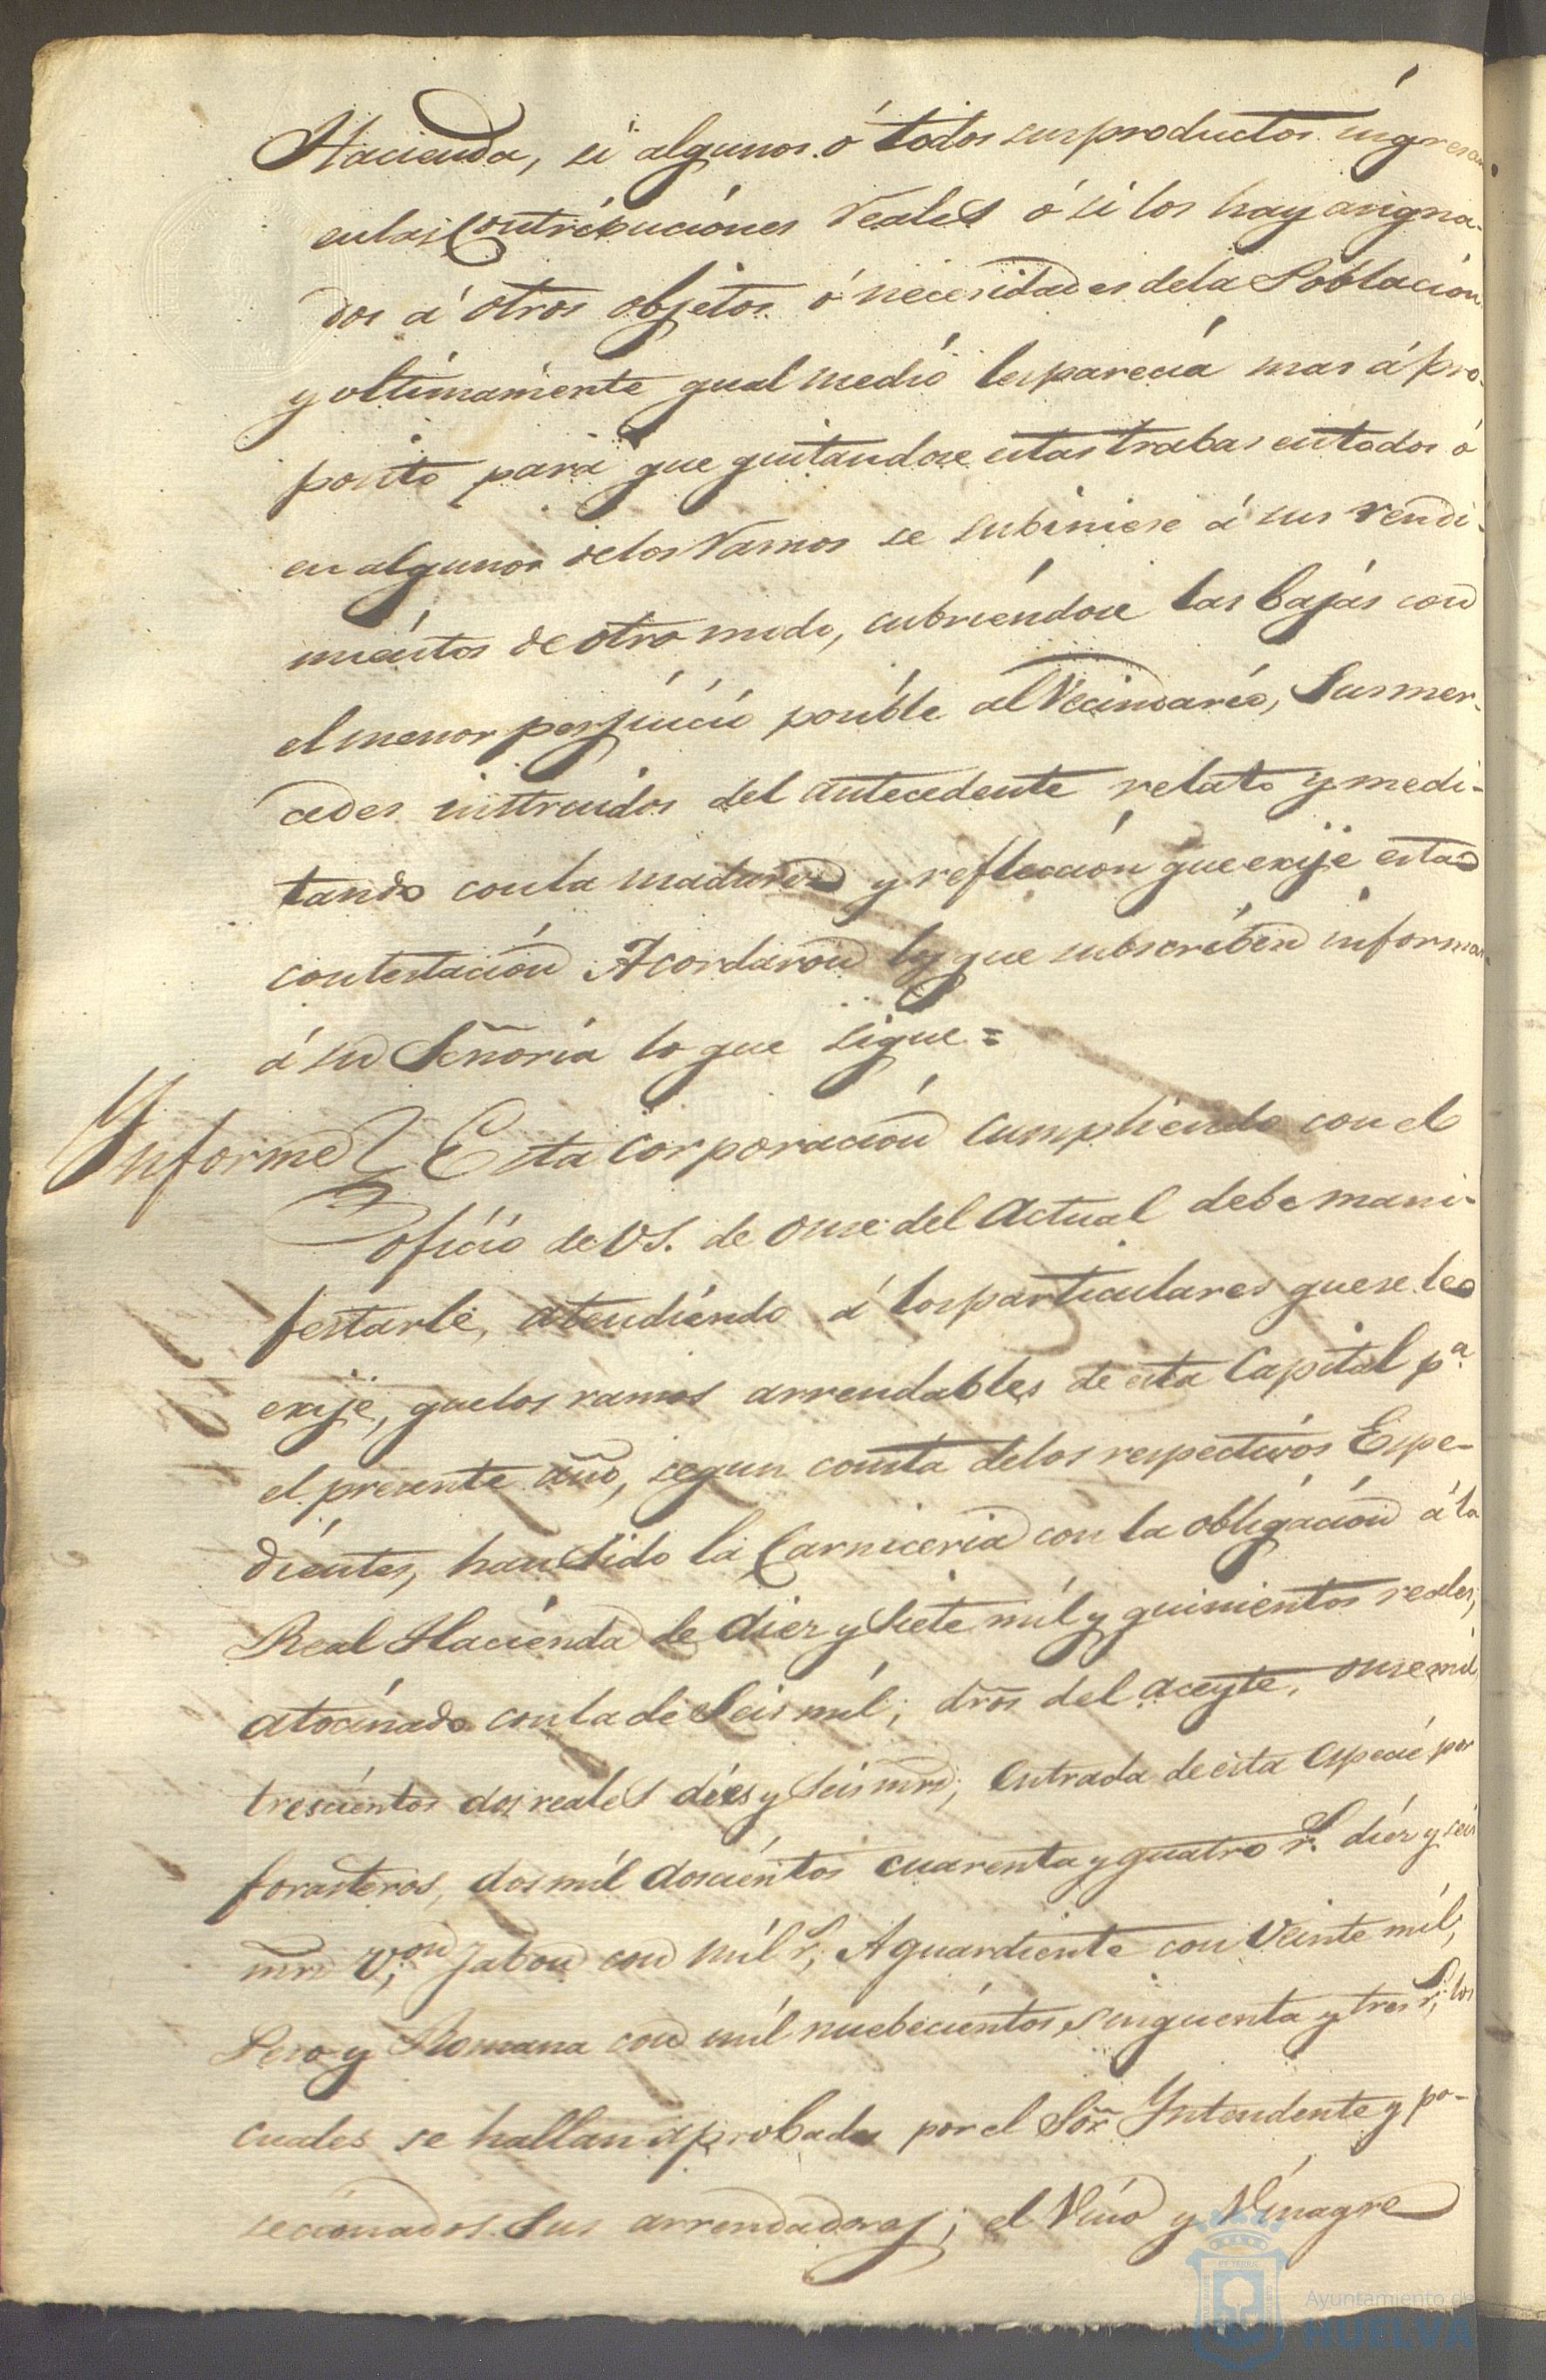 Hacienda, si algunos ó todos sus productos ingresan
en las Contribuciones reales ó si los hay asigna-
dos á otros objetos ó necesidades de la Poblacion
y ultimamente qual medio les parecia mas á pro-
posito para que quitandose estas trabas en todos ó
en algunos de los ramos se subiniese á sus rendi-
mientos de otro modo, cubriendose las bajas con
el menor perjuicio posible al Vecindario, Sus mer-
cedes instruidos del antecedente relato y medi-
tando con la madurez y refleccion que exije esta
contestacion Acordaron los que subscriben informar
á su Señoria lo que sigue =
Ynforme Esta corporacion cumpliendo con el
oficio de VS. de onse del actual debe mani-
festarle, atendiendo á los particulares que se le
exije, que los ramos arrendables de esta Capital pª
el presente año, segun consta de los respectivos Espe-
dientes, han sido la Carniceria con la obligacion á la
Real Hacienda de diez y siete mil y quinientos reales,
atocinado con la de Seis mil; dros del aceyte, onse mil
trescientos dos reales dies y seis mrs; entrada de esta especie por
forasteros, dos mil doscientos cuarenta y quatro rs. diez y seis
mrs von; Jabon con mil rs; Aguardiente con veinte mil;
Peso y Romana con mil nuebecientos sinquenta y tres rs; los
cuales se hallan aprobados por el Sor Yntendente y po-
secionados sus arrendadores; el Vino y Vinagre
Ayuntamiento de
HUELVA